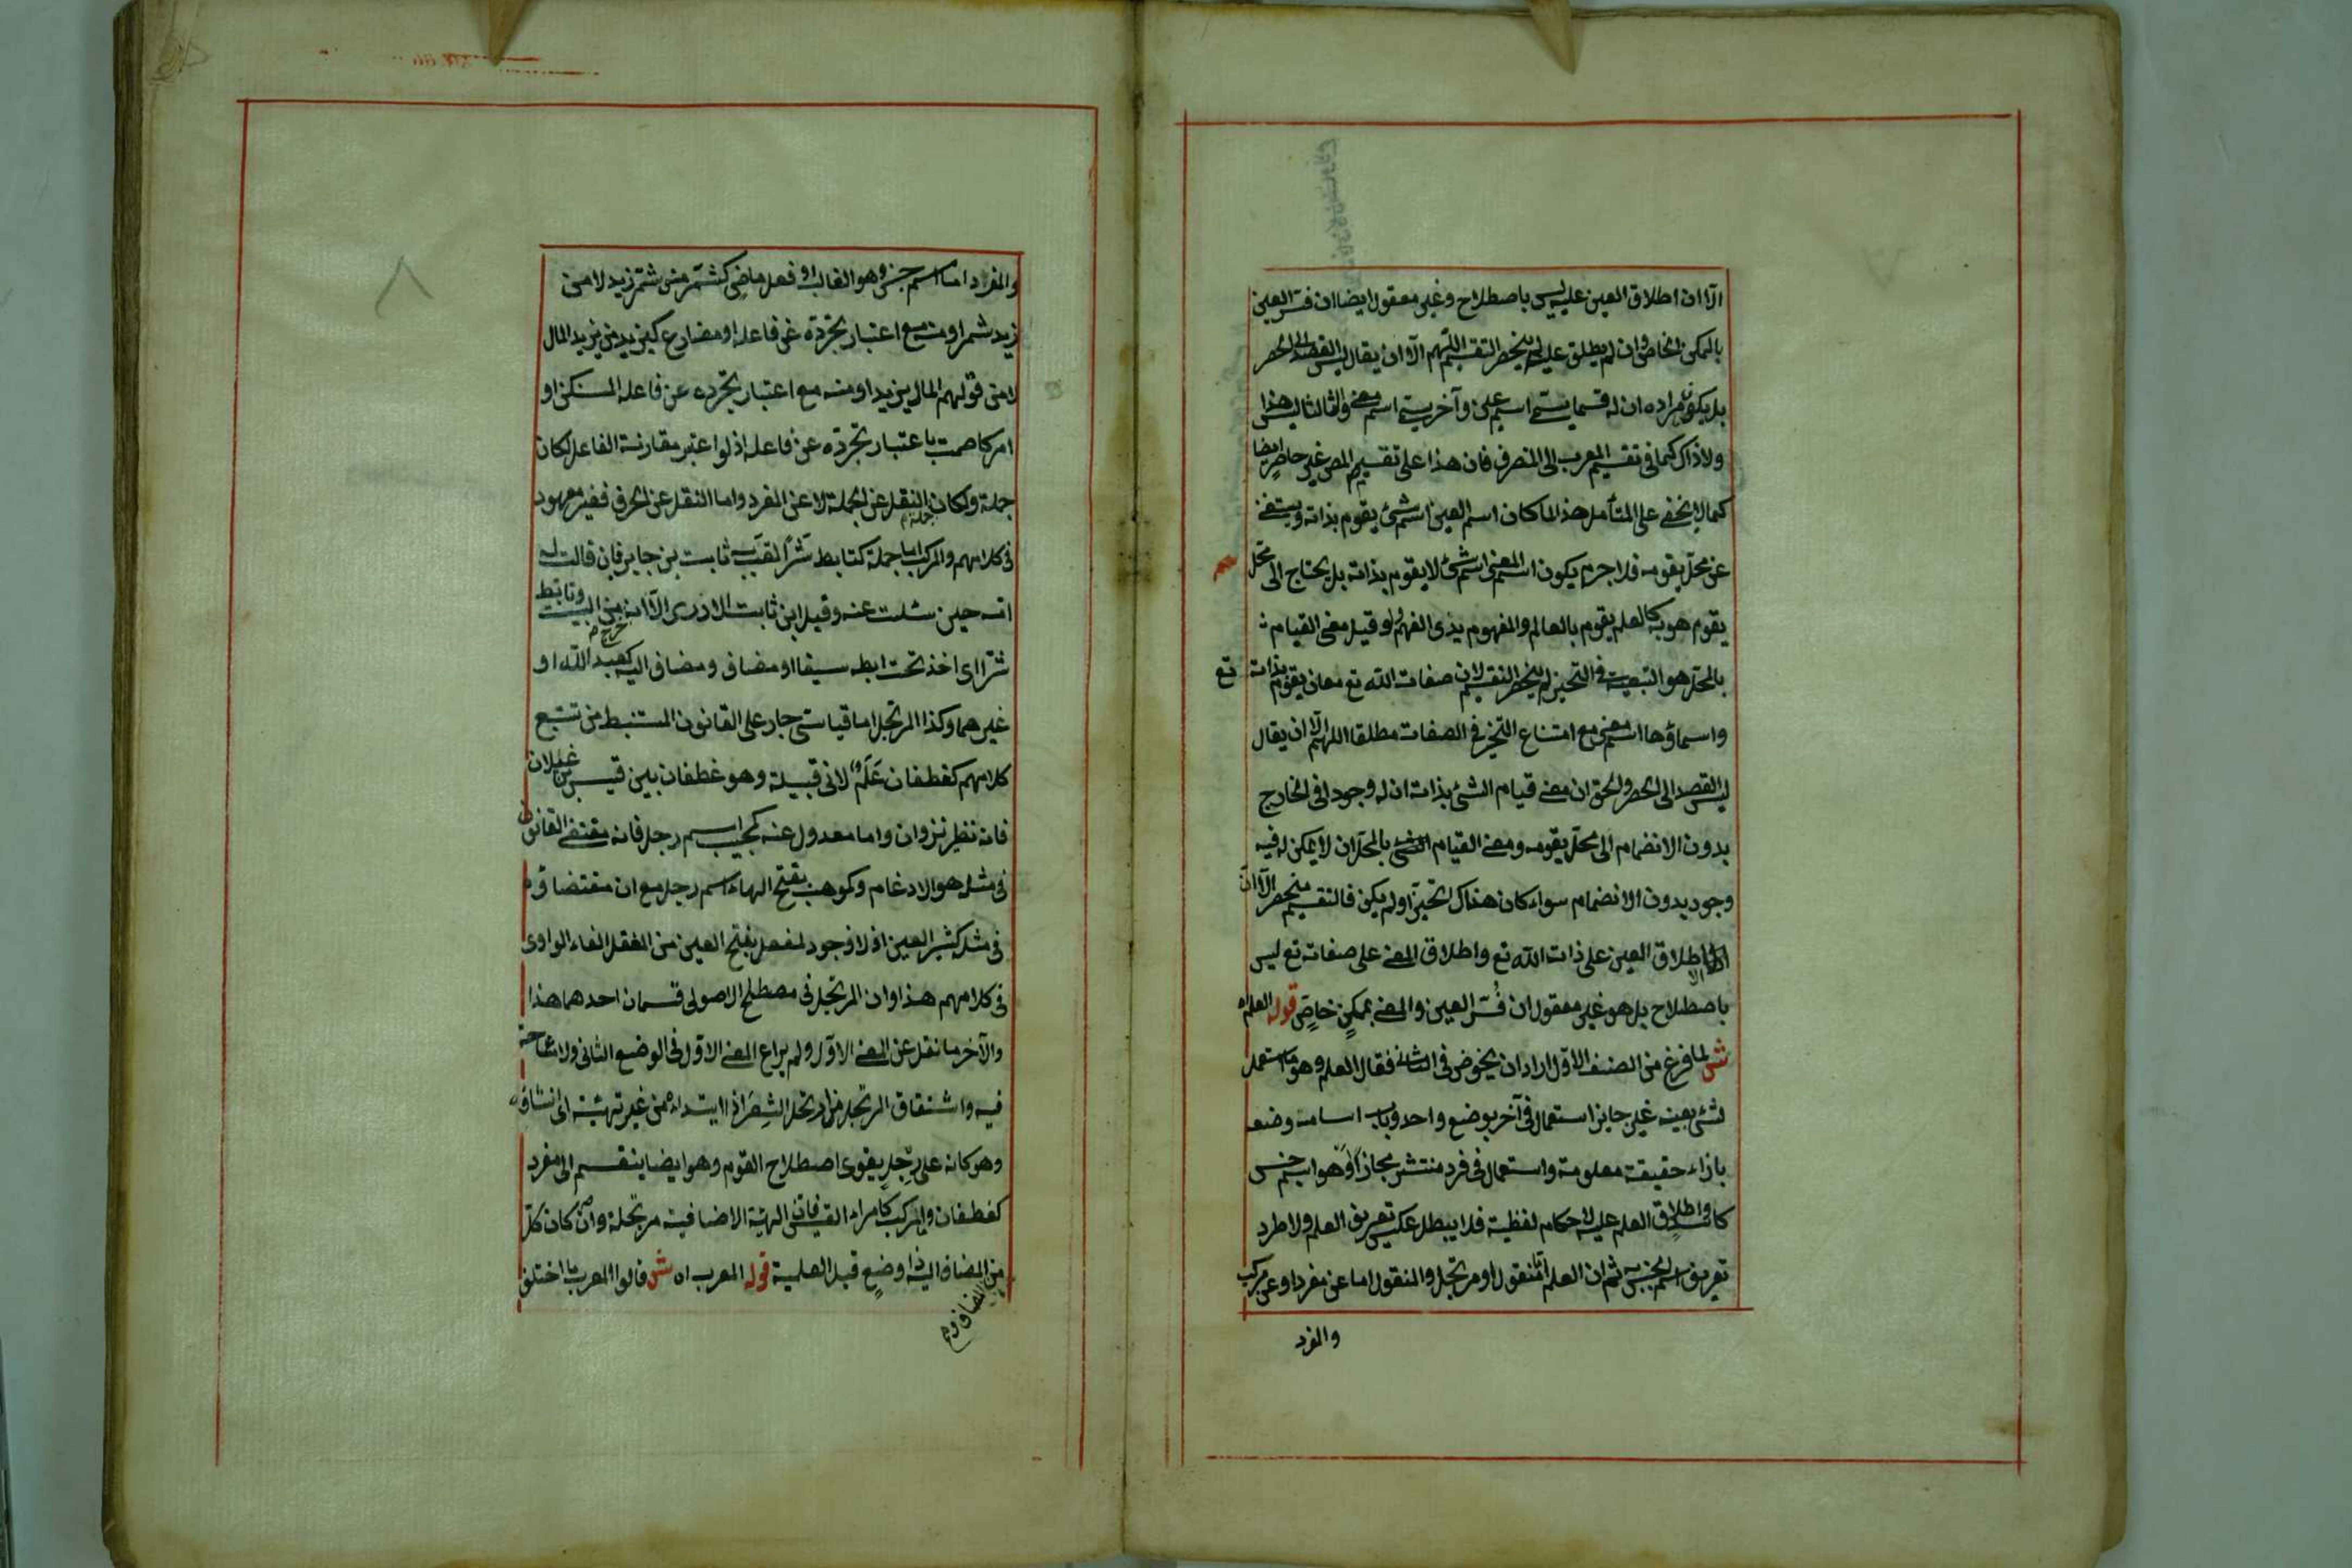 الا ان اطلاق العين عليه ليس باصطلاح وغير معقول ايضا ان فسر العين
بالممكن الخاص وان لم يطلق عليه لم ينحصر التقسيم اللهم الا ان يقال ليس القصد الى الحصر
بل يكون مراده ان له قسما يسمى اسم عين وآخر يسمى اسم معنى والثالث ليس هذا
ولا ذاك كما في تقسيم المعرب الى المنصرف فان هذا على تقسيم المص غير حاصر ايضا
كما لا يخفى على المتأمل هذا لما كان اسم العين اسم شئ يقوم بذاته ويستغنى
عن محل يقومه فلا جرم يكون اسم المعنى اسم شئ لا يقوم بذاته بل يحتاج الى محل
يقوم هو به كالعلم يقوم بالعالم والمفهوم بذى الفهم ولو قيل معنى القيام
بالمحل هو التبعية في التحيز لم ينحصر التقسيم لان صفات الله تع معان يقوم بذاته تع
واسماؤها اسم معنى مع امتناع التحيز في الصفات مطلقا اللهم الا ان يقال
ليس القصد الى الحصر والحق ان معنى قيام الشئ بذاته ان له وجودا في الخارج
بدون الانضمام الى محل يقومه ومعنى القيام الشئ بالمحل ان لا يمكن له فيه
وجود بدون الانضمام سواء كان هناك تحيز او لم يكن فالتقسيم منحصر الا ان
اطلاق العين على ذات الله تع واطلاق المعنى على صفاته تع ليس
باصطلاح بل هو غير معقول ان فُسّر العين والمعنى بممكنٍ خاصٍ قوله العلم اه
ش لما فرغ من الصنف الاول اراد ان يخوض في الثاني فقال العلم وهو ما استعمل
لشئ بعينه غير جايز استعماله في آخر بوضع واحد وباب اسامة وضعه
بازاء حقيقة معلومة واستعماله في فرد منتشر مجازا او هو اسم جنس
كاسد واطلاق العلم عليه لاحكام لفظية فلا يبطل عكس تعريف العلم ولا طرد
تعريف اسم الجنس به ثم ان العلم اما منقول او مرتجل والمنقول اما عن مفرد او عن مركب
والمفرد
والمفرد اما اسم جنس وهو الغالب او فعل ماضٍ كشمّر من شمّر زيد لا من
زيد شمر او منه مع اعتبار تجرده عن فاعله او مضارع كيزيد من يزيد المال
لا من قولهم المال يزيد او منه مع اعتبار تجرده عن فاعله المستكن او
امر كاصمت باعتبار تجرده عن فاعله اذ لو اعتبر مقارنة الفاعل لكان
جملة ولكان النقل عن الجملة لا عن المفرد واما النقل عن الحرف فغير معهود
في كلامهم والمركب اما جملة كتابط شرًا لقب به ثابت بن جابر فان قالت له
امه حين سئلت عنه وقيل اين ثابت لا ادرى الا انه من البيت وتابط
خرج م
شرا اى اخذ تحت ابطه سيفا او مضاف ومضاف اليه كعبد الله او
غيرهما وكذا المرتجل اما قياسى جار على القانون المستنبط من تتبع
كلامهم كغطفان عَلَمٌ لابى قبيلة وهو غطفان بن قيس غيلان
فانه نظير نزوان واما معدول عنه كمحبب اسم رجل فان مقتضى القانون
في مثله هو الادغام وكموهب بفتح الهاء اسم رجل مع ان مقتضاه
في مثله كسر العين اذ لا وجود لمفعل بفتح العين من المعتل الفاء الواوى
في كلامهم هذا وان المرتجل في مصطلح الاصولى قسمان احدهما هذا
والآخر ما نقل عن المعنى الاول ولم يراع المعنى الاول في الوضع الثانى ولا مشاحة
فيه واشتقاق المرتجل من ارتجل الشِعَر اذا ابتداه من غير تهيئة اى انشاؤه
وهو كانه على رِجلٍ يقوى اصطلاح القوم وهو ايضا ينقسم الى مفرد
كغطفان والمركب كامراء القيس فان الهيئة الاضافية مرتجلة وان كان كل
من المضاف اليه ذا وضعٍ قبل العلمية قوله المعرب اه ش قالوا المعرب ما اختلف
المضاف و م